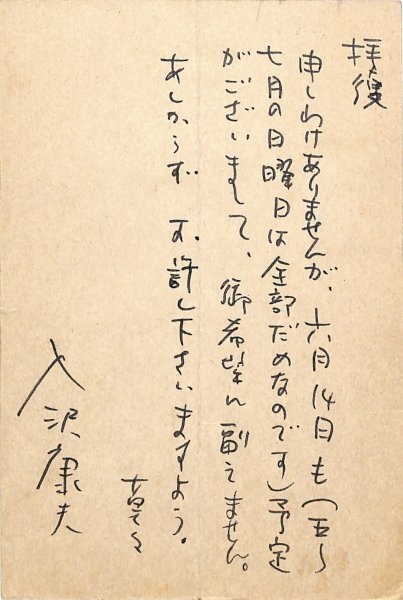 拝復
申しわけありませんが、六月14日も(五〜
七月の日曜日は全部だめなのです)予定
がございまして、御希望に副えません。
あしからず お許し下さいますよう。
草々
入沢康夫